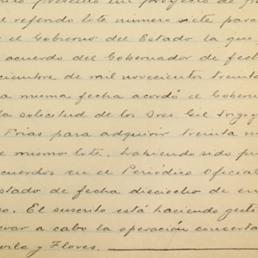 presento un proyecto de
el referido lote número siete para
el Gobierno del Estado la que
acuerdo del Gobernador de fech
ciembre de mil novecientos treinta
la misma fecha acordó el Gobern
la solicitud de los Sres. Gil
Frías para adquirir treinta m
e mismo lote. habiendo sido pu
cuerdos en el Periódico Oficial
stado de fecha dieciocho de en
so. El suscrito está haciendo gesti
evar a cabo la operación concerta
vila y Flores.